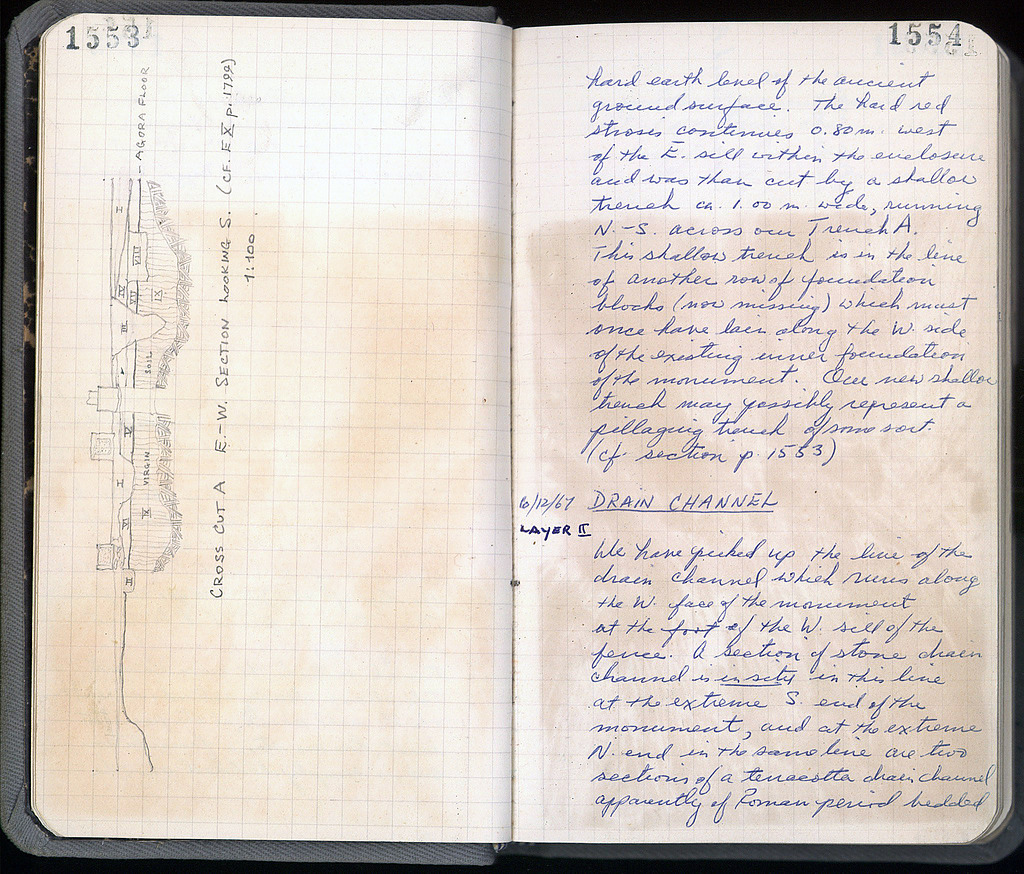 1553
AGORA FLOOR
I
VIII
IV
VII
IX
III
SOIL
V
IV
I
VIRGIN
VI
IX
II
CROSS CUT A E.-W. SECTION LOOKING S. (CF. EX p. 1799)
1:100
1554
hard earth level of the ancient
ground surface. The hard red
strosis continues 0.80 m. west
of the E. sill within the enclosure
and was than cut by a shallow
trench ca. 1.00 m. wide, running
N.-S. across our Trench A.
This shallow trench is in the line
of another row of foundation
blocks (now missing) which must
once have lain along the W. side
of the existing inner foundation
of the monument. Our new shallow
trench may possibly represent a
pillaging trench of some sort.
(cf. section p. 1553)
6/12/67 DRAIN CHANNEL
LAYER II
We have picked up the line of the
drain channel which runs along
the W. face of the monument
at the foot of the W. sill of the
fence. A section of stone drain
channel is in situ in this line
at the extreme S. end of the
monument, and at the extreme
N. end in the same line are two
sections of a terracotta drain channel
apparently of Roman period bedded